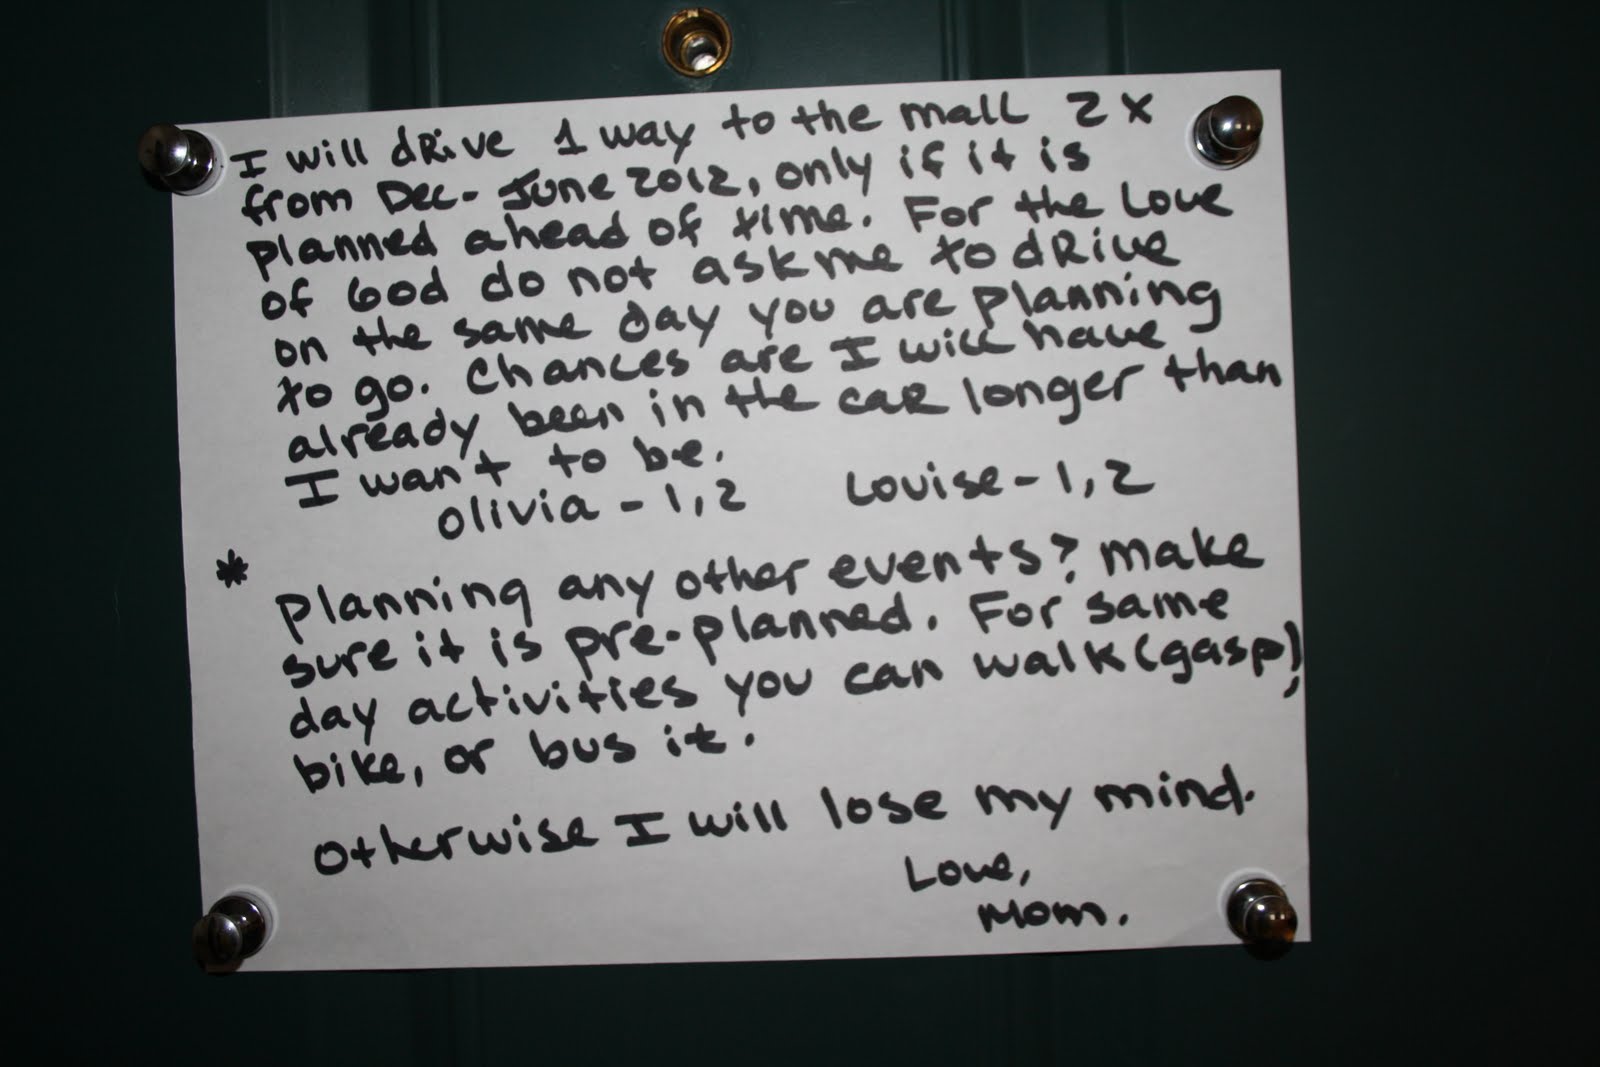 I will dRive 1 way to the mall 2x
from Dec- June 2012, only if it is
planned ahead of time. For the Love
of God do not ask me to dRive
on the same day you are planning
to go. Chances are I will have
already been in the caR longer than
I want to be.
Olivia - 1,2 Louise - 1,2
* Planning any other events? Make
sure it is pre-planned. For same
day activities you can walk (gasp),
bike, or bus it.
Otherwise I will lose my mind.
Love,
Mom.